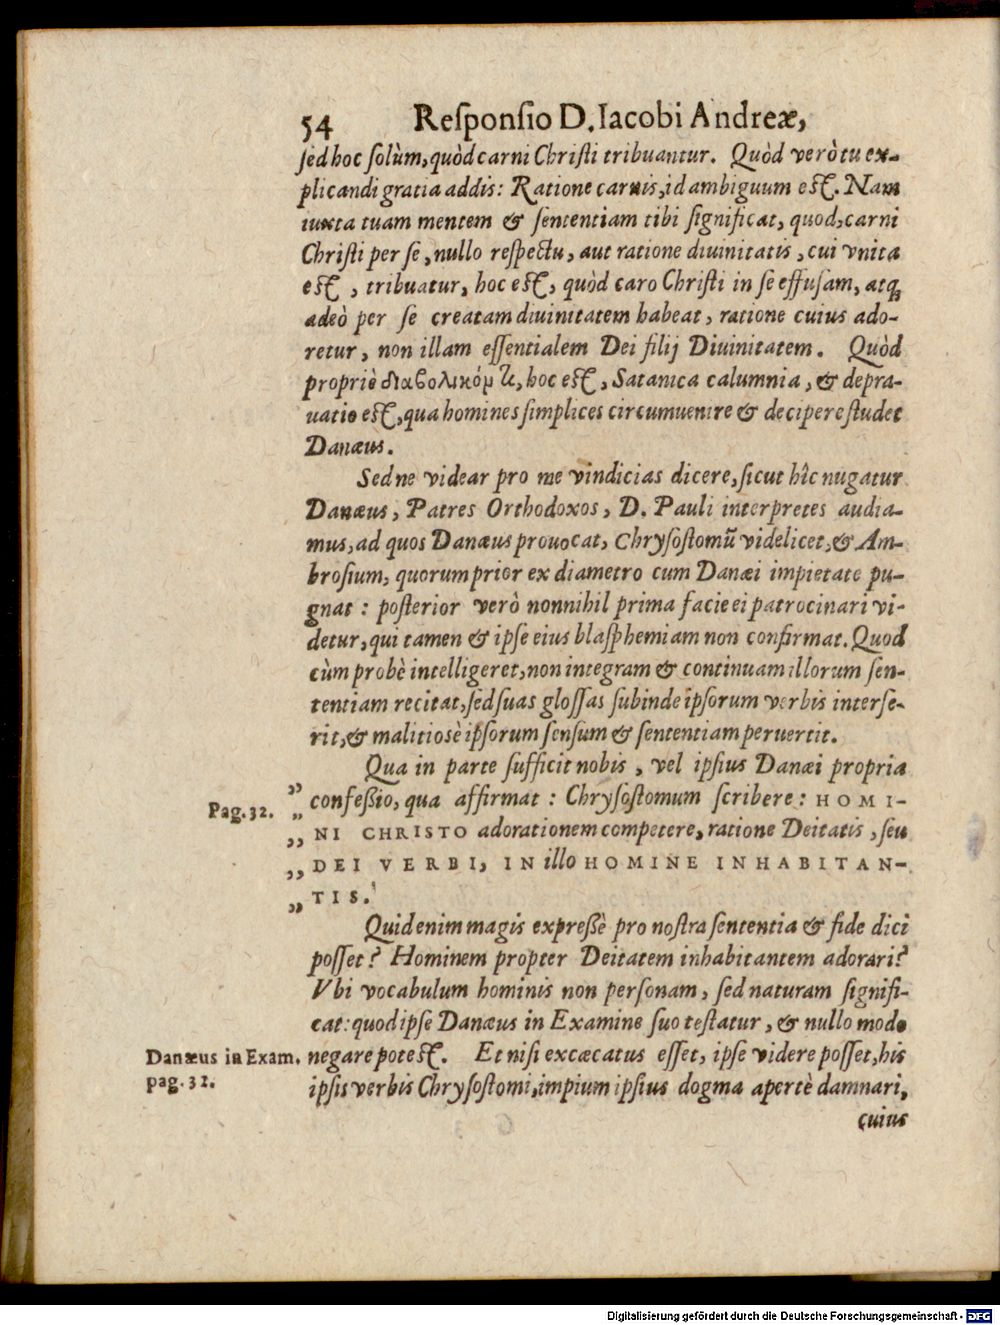 54 Reſponſio D. Iacobi Andreæ,
ſed hoc ſolùm, quòd carni Chriſti tribuantur. Quòd verò tu ex-
plicandi gratia addis: Ratione carnis, id ambiguum eſt. Nam
iuxta tuam mentem & ſententiam tibi ſignificat, quod, carni
Chriſti per ſe, nullo reſpectu, aut ratione diuinitatis, cui vnita
eſt, tribuatur, hoc eſt, quòd caro Chriſti in ſe effuſam, atq;
adeò per ſe creatam diuinitatem habeat, ratione cuius ado-
retur, non illam eſſentialem Dei filij Diuinitatem. Quòd
propriè διαβολικόμ τι, hoc eſt, Satanica calumnia, & depra-
uatio eſt, qua homines ſimplices circumuenire & decipere ſtudet
Danæus.
Sed ne videar pro me vindicias dicere, ſicut hîc nugatur
Danæus, Patres Orthodoxos, D. Pauli interpretes audia-
mus, ad quos Danæus prouocat, Chryſoſtomũ videlicet, & Am-
broſium, quorum prior ex diametro cum Danæi impietate pu-
gnat: poſterior verò nonnihil prima facie ei patrocinari vi-
detur, qui tamen & ipſe eius blaſphemiam non confirmat. Quod
cùm probè intelligeret, non integram & continuam illorum ſen-
tentiam recitat, ſed ſuas gloſſas ſubinde ipſorum verbis interſe-
rit, & malitiosè ipſorum ſenſum & ſententiam peruertit.
Qua in parte ſufficit nobis, vel ipſius Danæi propria
Pag. 32. „ confeßio, qua affirmat: Chryſoſtomum ſcribere: HOMI-
„ NI CHRISTO adorationem competere, ratione Deitatis, ſeu
„ DEI VERBI, IN illo HOMINE INHABITAN-
„ TIS.
Quid enim magis expreßè pro noſtra ſententia & fide dici
poſſet? Hominem propter Deitatem inhabitantem adorari?
Vbi vocabulum hominis non perſonam, ſed naturam ſignifi-
cat: quod ipſe Danæus in Examine ſuo teſtatur, & nullo modo
Danæus in Exam. negare poteſt. Et niſi excæcatus eſſet, ipſe videre poſſet, his
pag. 32. ipſis verbis Chryſoſtomi, impium ipſius dogma apertè damnari,
cuius
Digitalisierung gefördert durch die Deutsche Forschungsgemeinschaft - DFG